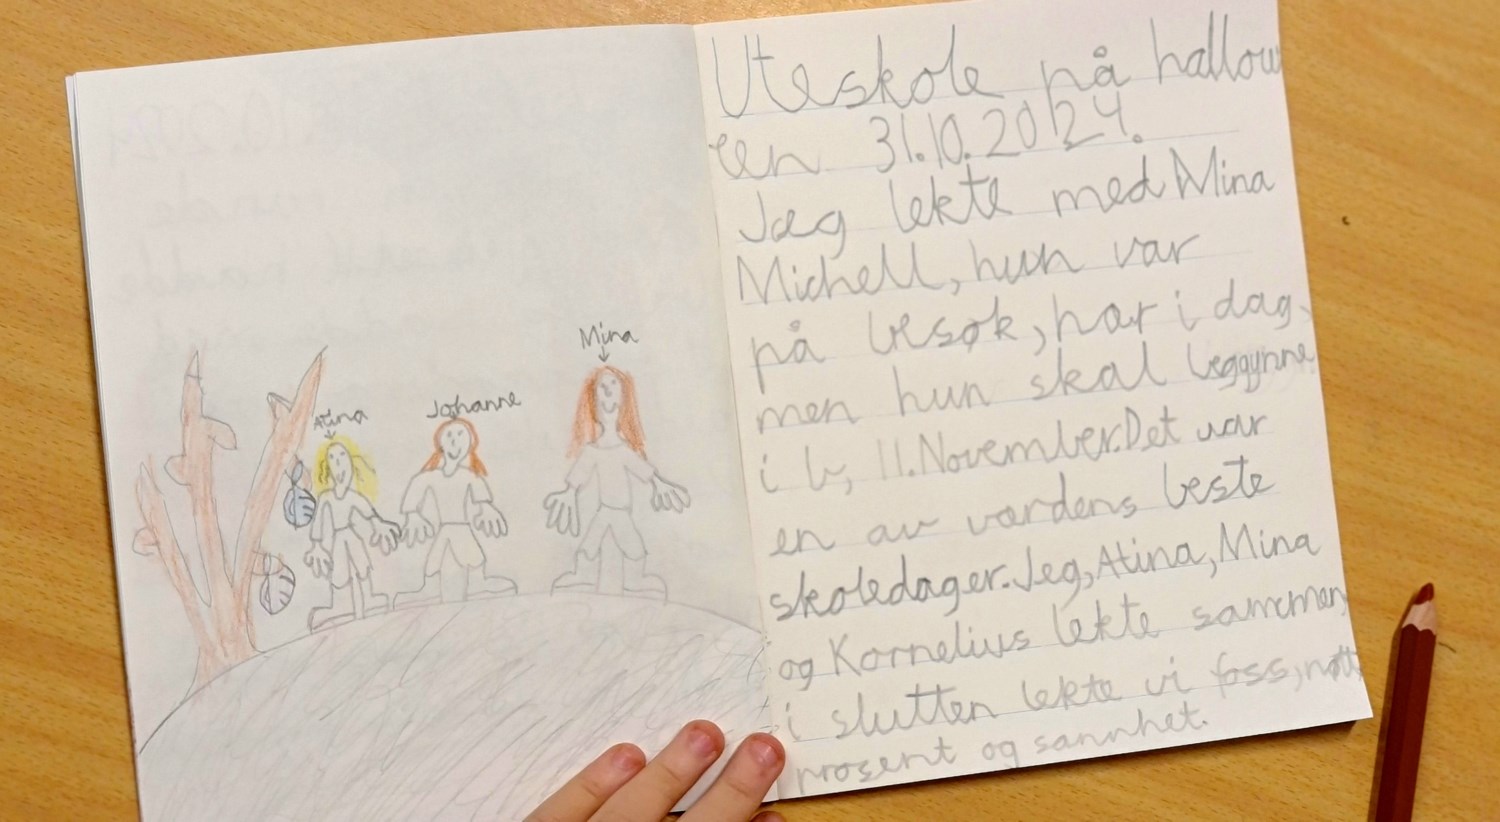 Mina
Atina
Johanne
Uteskole på hallow
een 31.10.2024.
Jeg lekte med Mina
Michell, hun var
på besøk, har i dag,
men hun skal beggynne
i b, 11.November.Det var
en av vardens beste
skoledager.Jeg,Atina,Mina
og Kornelius lekte sammen,
i slutten lekte vi foss,nøtt,
prosent og sannhet.